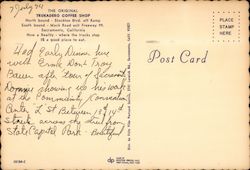 7 July 74
THE ORIGINAL
TRUKADERO COFFEE SHOP
North bound - Stockton Blvd. off Ramp
South bound - Mack Road exit Freeway 99
Sacramento, California
Now a Reality - where the trucks stop
IS a good place to eat.
Had Early Dinner here
with Ernie Don & Troy
Bauer after tour of Sacramento
showing us his work
at the Community Convention
Center L St Between 13 & 14th
Street across the street from
State Capitol Park - Beautiful
Post Card
PLACE
STAMP
HERE